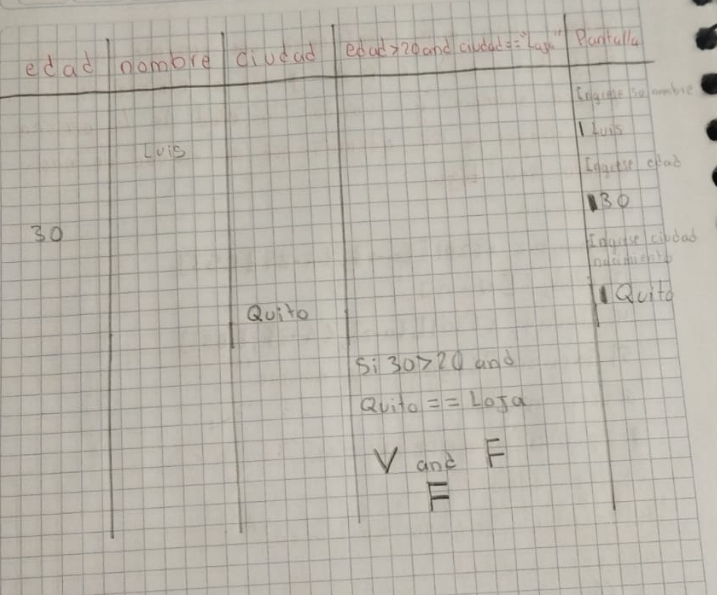 edad nombre ciudad edad>20 and ciudad=="Loja" Pantalla
Ingrese su nombre
Luis
Luis
Ingrese edad
30
30
Ingrese ciudad
nacimiento
Quito
Quito
Si 30>20 and
Quito == Loja
V and F
F